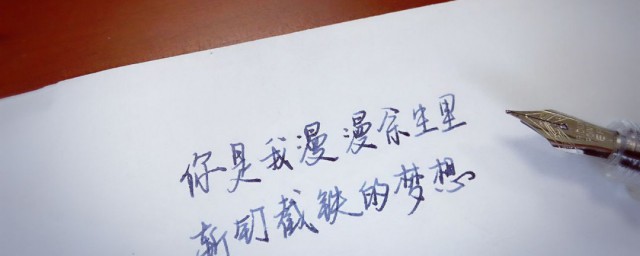 你是我漫漫余生里
斩钉截铁的梦想